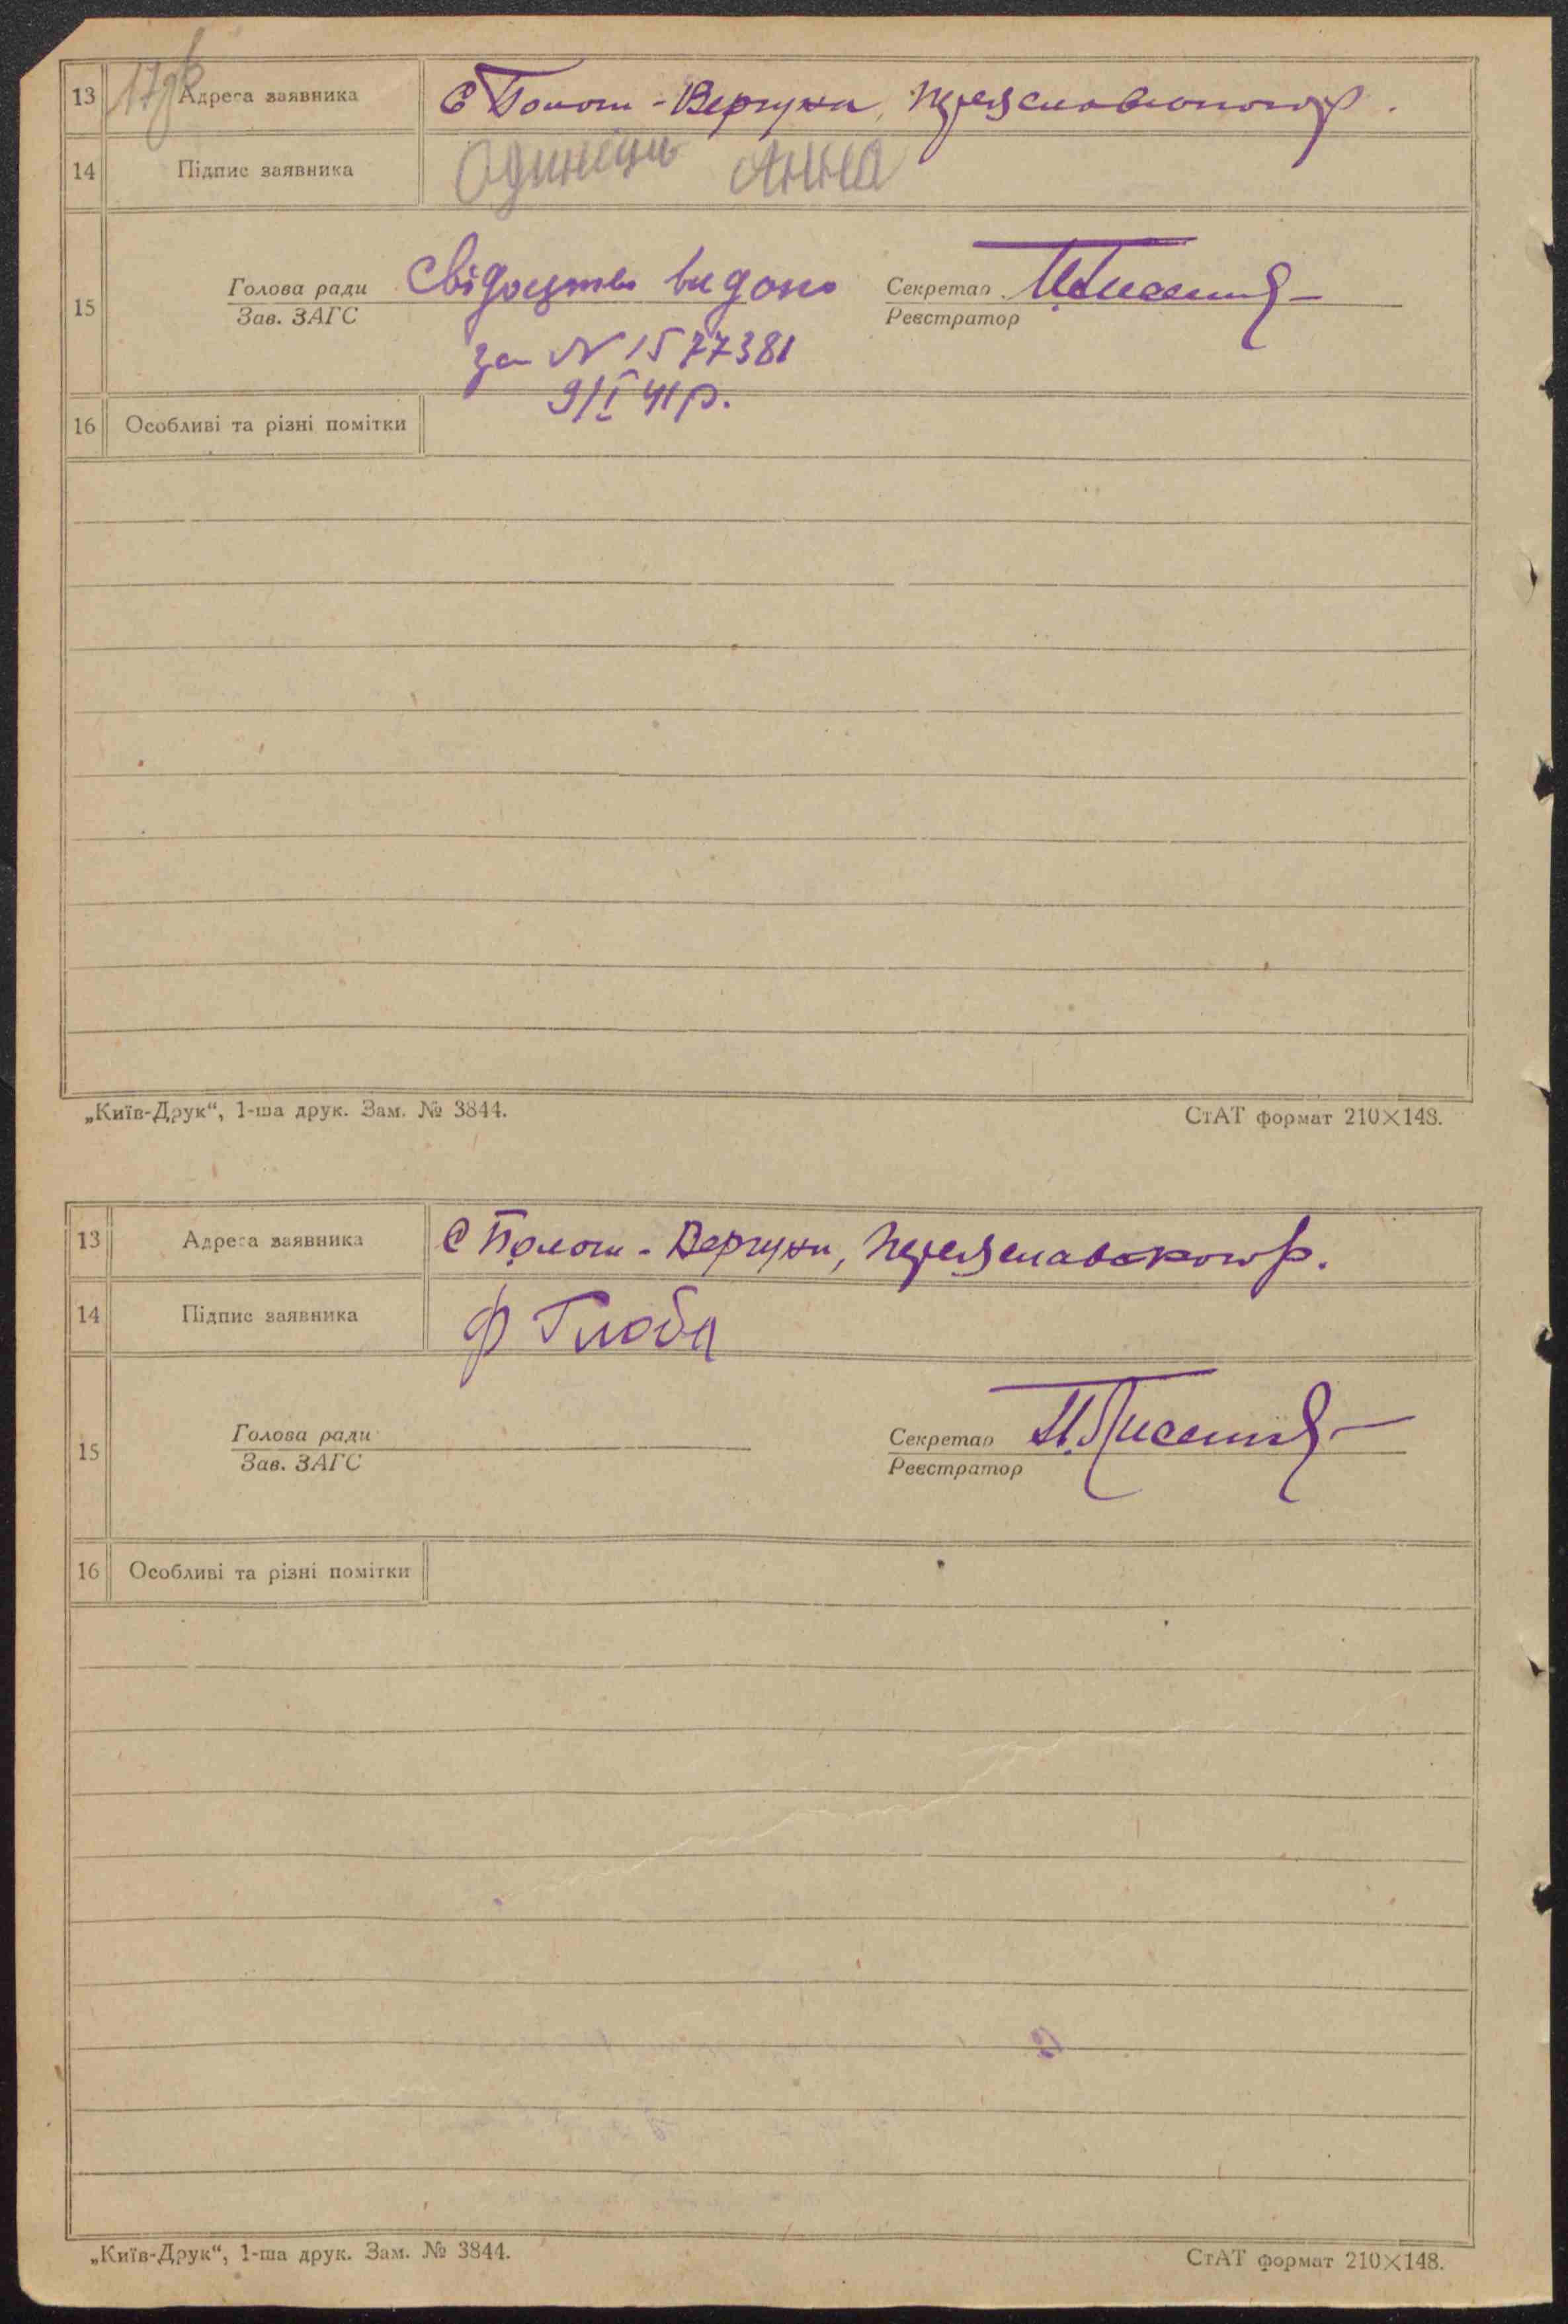 17
13 Адреса заявника С Полог-Вергуни, Переяславського р.
14 Підпис заявника Одинець Анна
15 Голова ради Свідоцтво видано Секретар
Зав. ЗАГС Реєстратор
за № 1577381
9/I 41 р.
16 Особливі та різні помітки
„Київ-Друк“, 1-ша друк. Зам. № 3844. СтАТ формат 210×148.
13 Адреса заявника С Полог-Вергуни, Переяславського р.
14 Підпис заявника Ф Глоба
15 Голова ради Секретар
Зав. ЗАГС Реєстратор
16 Особливі та різні помітки
„Київ-Друк“, 1-ша друк. Зам. № 3844. СтАТ формат 210×148.